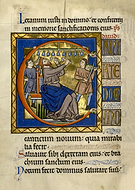 Letamini iusti in domino: et confitem
ini memorie sanctificationis eius.
canticum nouum: quia mirabi
lia fecit.
Saluauit sibi dextera eius: et bra
chium sanctum eius.
Notum fecit dominus salutare suum: